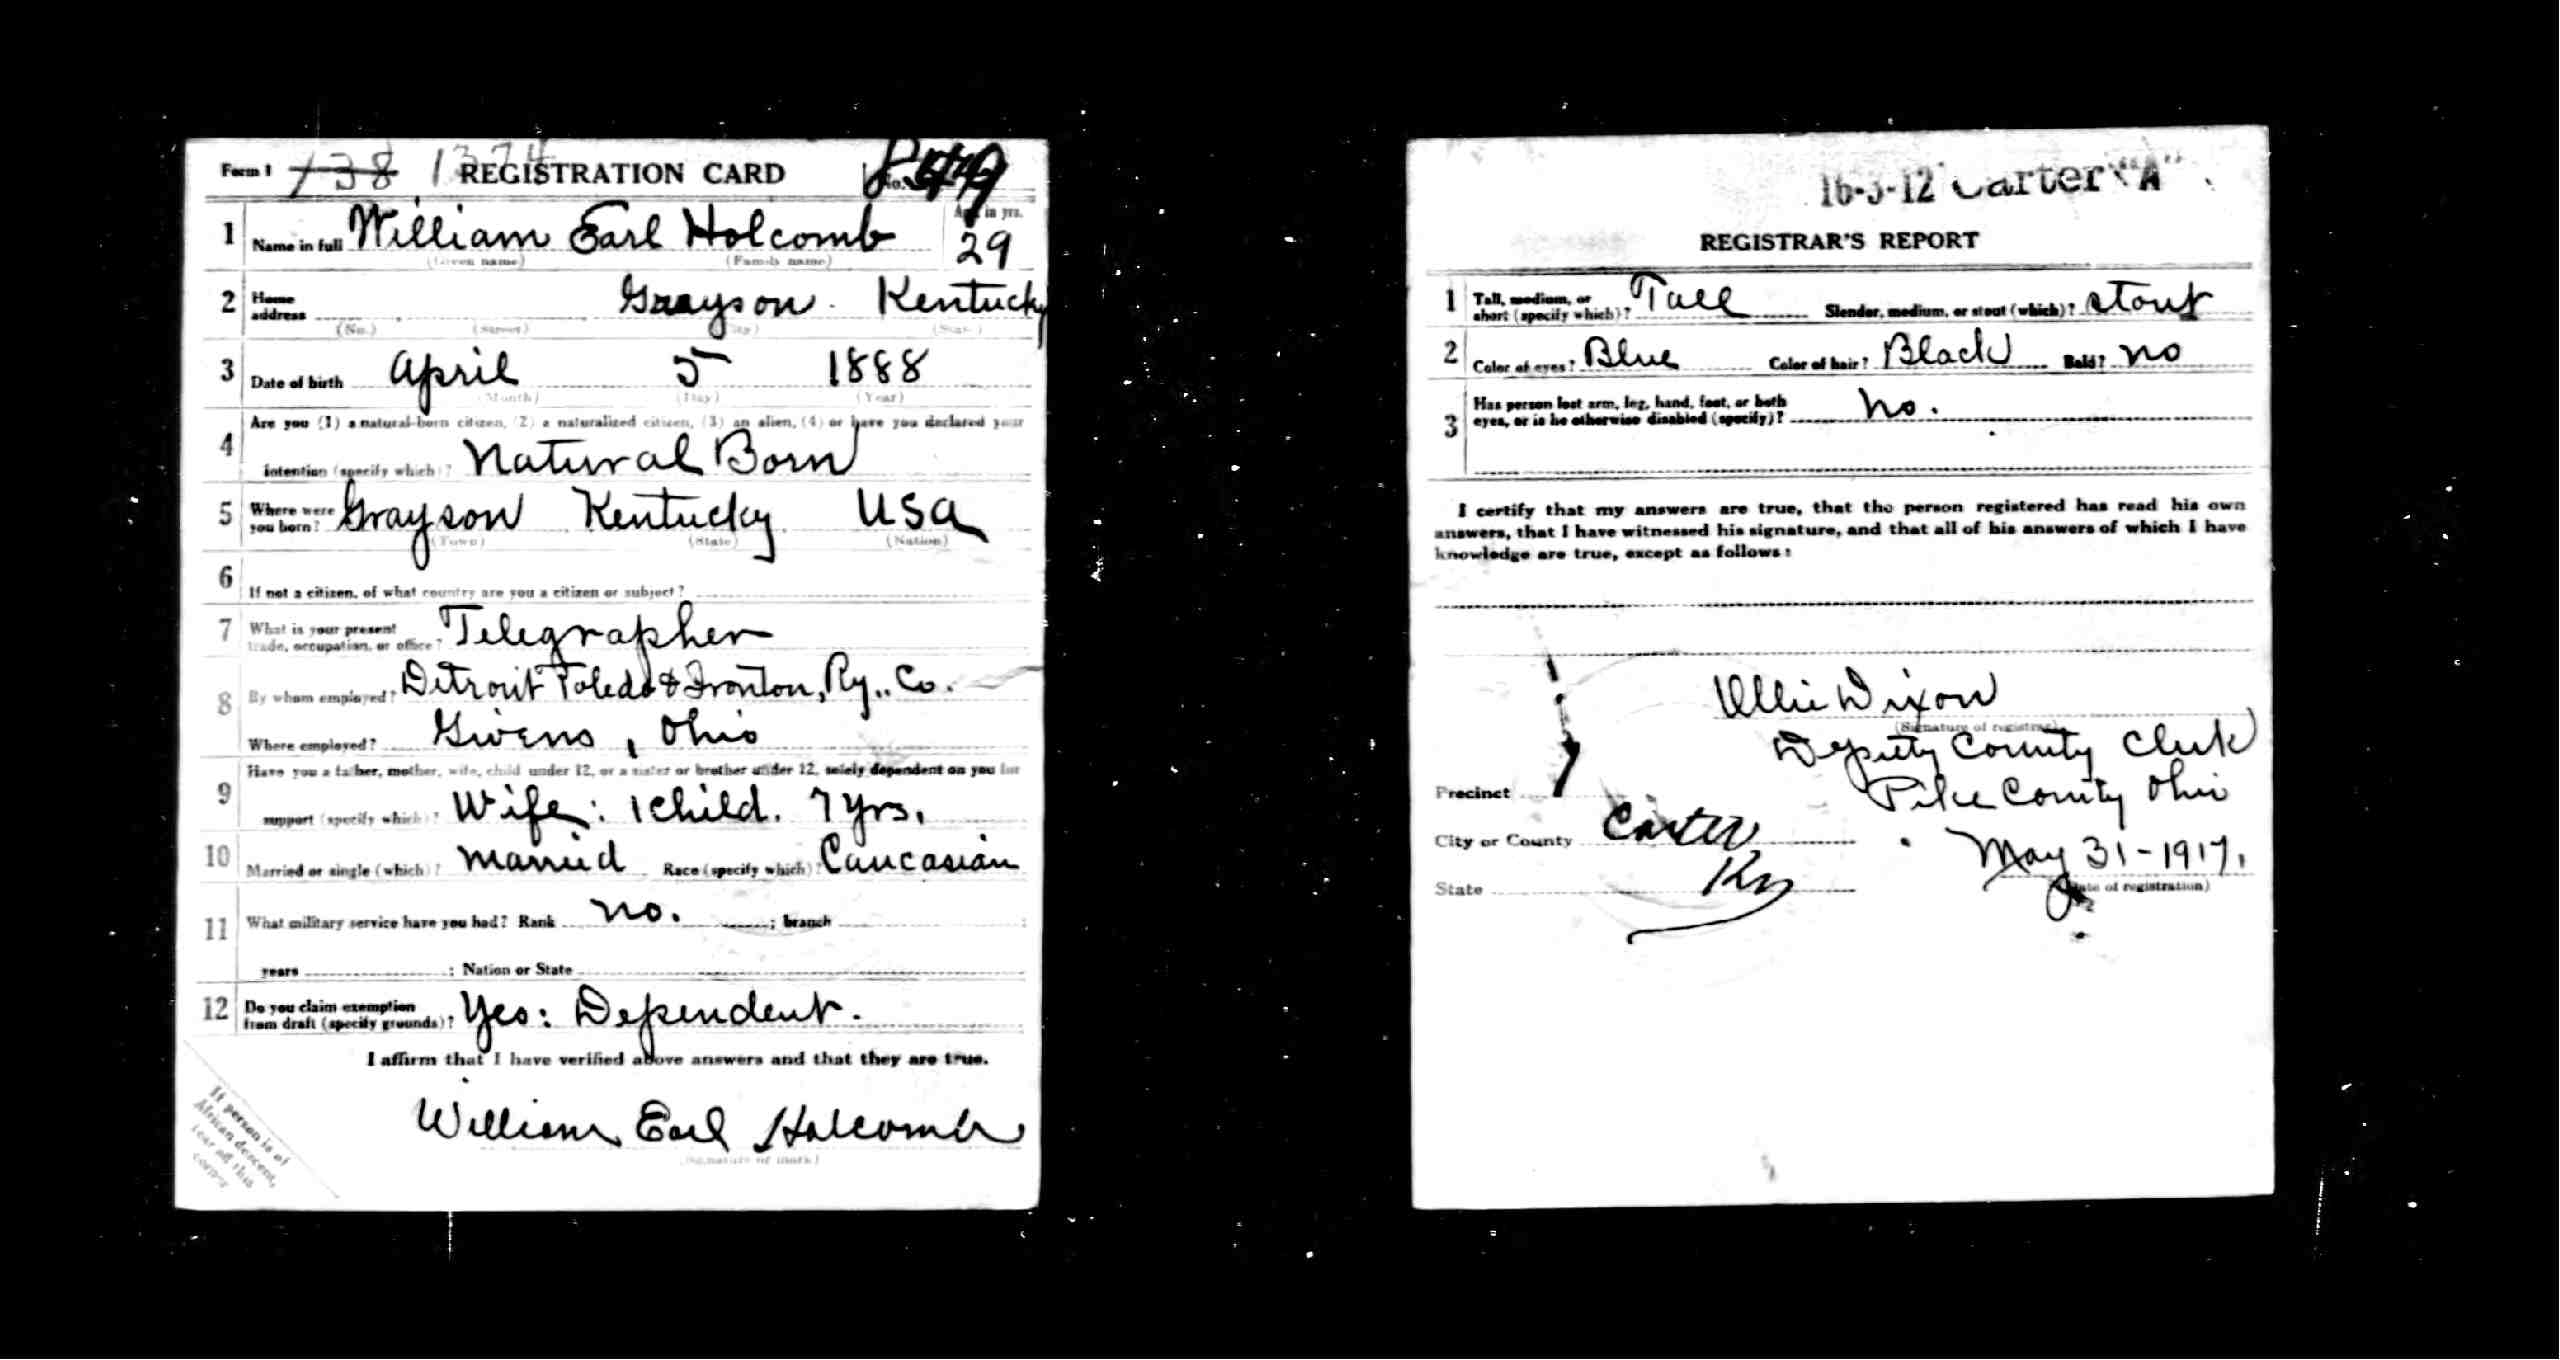 Form 1 138 1374 REGISTRATION CARD No.
1 Name in full William Earl Holcomb Age in yrs. 29
(Given name) (Family name)
2 Home address Grayson Kentucky
(No.) (Street) (City) (State)
3 Date of birth April 5 1888
(Month) (Day) (Year)
4 Are you (1) a natural-born citizen, (2) a naturalized citizen, (3) an alien, (4) or have you declared your
intention (specify which)? Natural Born
5 Where were you born? Grayson Kentucky USA
(Town) (State) (Nation)
6 If not a citizen, of what country are you a citizen or subject?
7 What is your present trade, occupation, or office? Telegrapher
8 By whom employed? Detroit Toledo & Ironton, Ry., Co.
Where employed? Givens, Ohio
9 Have you a father, mother, wife, child under 12, or a sister or brother under 12, solely dependent on you for
support (specify which)? Wife: 1 child. 7 yrs.
10 Married or single (which)? Married Race (specify which)? Caucasian
11 What military service have you had? Rank no. ; branch ;
years ; Nation or State
12 Do you claim exemption from draft (specify grounds)? Yes: Dependent.
I affirm that I have verified above answers and that they are true.
William Earl Holcomb
(Signature or mark)
If person is of
African descent,
tear off this
corner
16-3-12 Carter "A"
REGISTRAR'S REPORT
1 Tall, medium, or short (specify which)? Tall Slender, medium, or stout (which)? stout
2 Color of eyes? Blue Color of hair? Black Bald? no
3 Has person lost arm, leg, hand, foot, or both
eyes, or is he otherwise disabled (specify)? no.
I certify that my answers are true, that the person registered has read his own
answers, that I have witnessed his signature, and that all of his answers of which I have
knowledge are true, except as follows:
Ollie Dixon
(Signature of registrar)
Deputy County Clerk
Precinct
Pike County Ohio
City or County Carter
May 31-1917.
State Ky
(Date of registration)